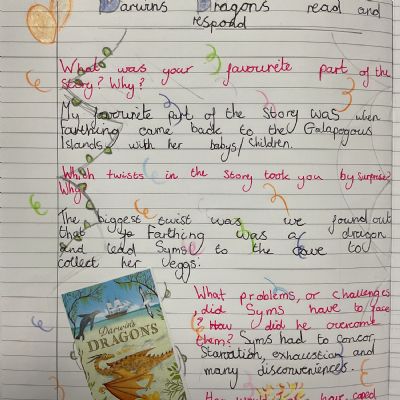 Darwins Dragons read and
respond
What was your favourite part of the
Story? Why?
My favourite part of the Story was when
Farthing came back to the Galapogous
Islands with her babys/Children.
Which twists in the Story took you by surprise?
Why?
The biggest twist was we found out
that Farthing was a dragon
and lead Syms to the cave to
collect her eggs.
What problems, or challenges
, did Syms have to face
? How did he overcome
them? Syms had to concor,
Starvation, exhaustion and
many disconveniences.
Darwin's
DRAGONS
How would have coped